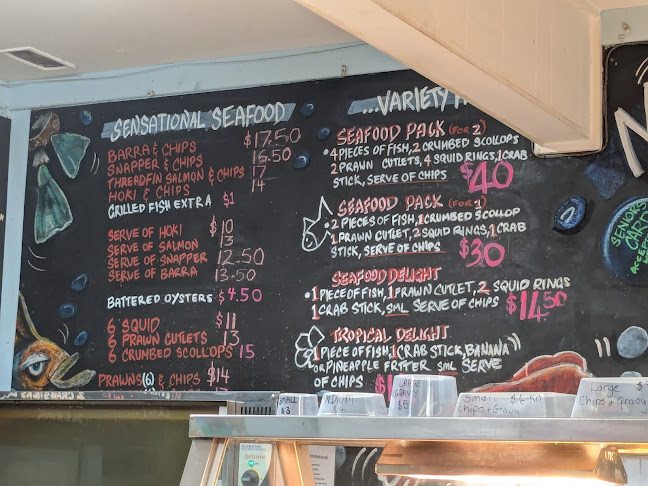 SENSATIONAL SEAFOOD
BARRA & CHIPS $17.50
SNAPPER & CHIPS 16.50
THREADFIN SALMON & CHIPS 17
HOKI & CHIPS 14
GRILLED FISH EXTRA $1
SERVE OF HOKI $10
SERVE OF SALMON 13
SERVE OF SNAPPER 12.50
SERVE OF BARRA 13.50
BATTERED OYSTERS $4.50
6 SQUID $11
6 PRAWN CUTLETS 13
6 CRUMBED SCOLLOPS 15
PRAWNS (6) & CHIPS $14
...VARIETY
SEAFOOD PACK (FOR 2)
4 PIECES OF FISH, 2 CRUMBED SCOLLOPS
2 PRAWN CUTLETS, 4 SQUID RINGS, 1 CRAB
STICK, SERVE OF CHIPS $40
SEAFOOD PACK (FOR 1)
2 PIECES OF FISH, 1 CRUMBED SCOLLOP
1 PRAWN CUTLET, 2 SQUID RINGS, 1 CRAB
STICK, SERVE OF CHIPS $30
SEAFOOD DELIGHT
1 PIECE OF FISH, 1 PRAWN CUTLET, 2 SQUID RINGS
1 CRAB STICK, SML SERVE OF CHIPS $14.50
TROPICAL DELIGHT
1 PIECE OF FISH, 1 CRAB STICK, BANANA
OR PINEAPPLE FRITTER SML SERVE
OF CHIPS
SENIORS
CARD
ACCEPTED
SMALL
$3
MEDIUM
LARGE
GRAVY
$5
Small
Chips + Gravy
Large $
Chips + Gravy